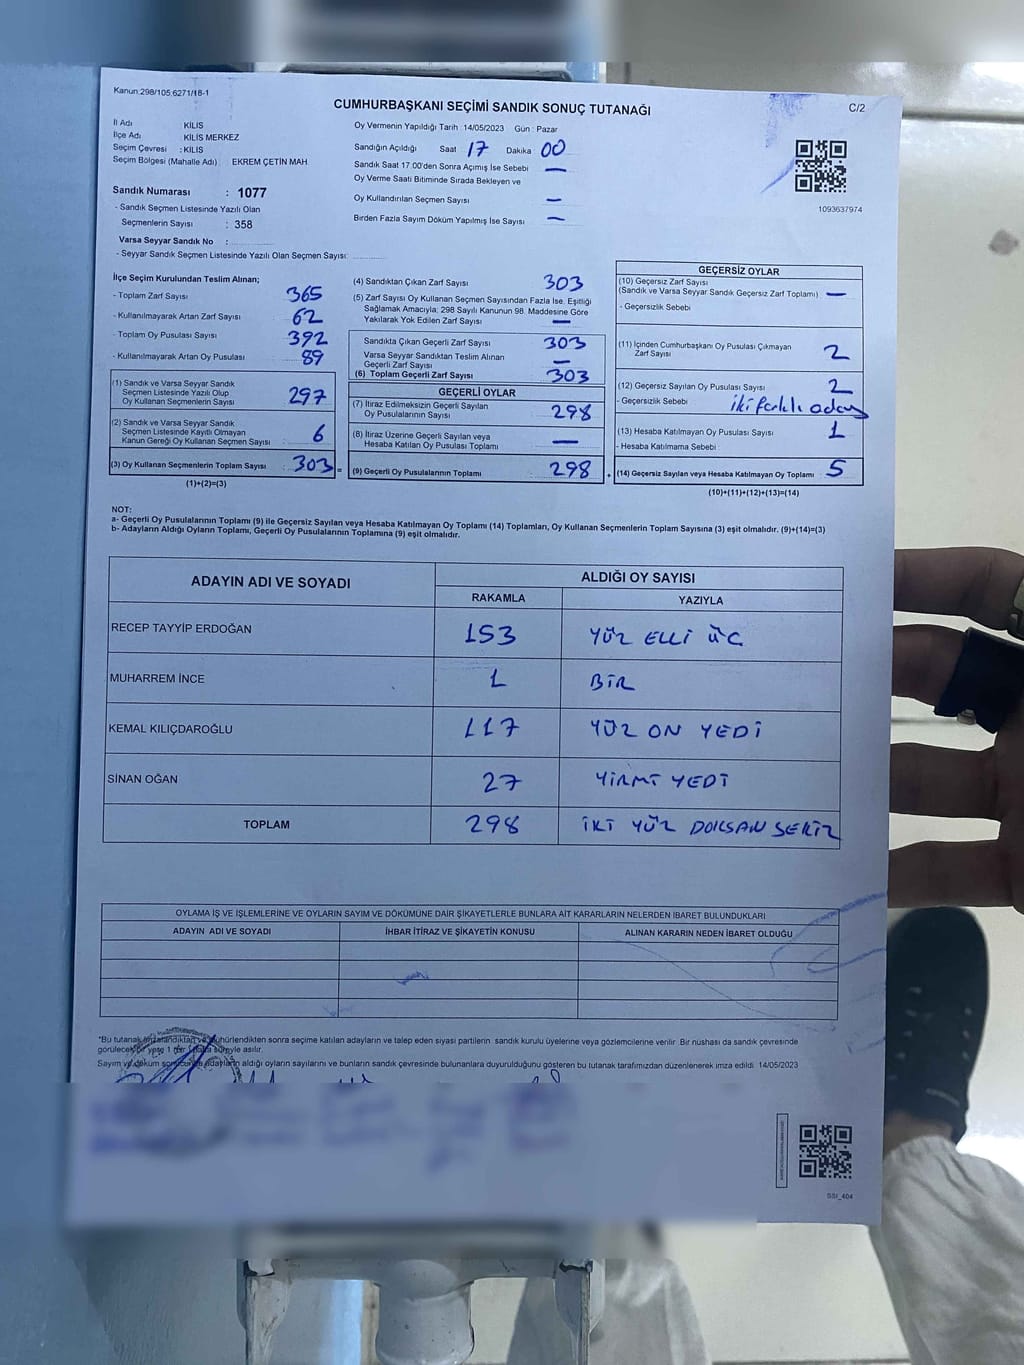 Kanun:298/105.6271/18-1
CUMHURBAŞKANI SEÇİMİ SANDIK SONUÇ TUTANAĞI
C/2
İl Adı KİLİS
İlçe Adı KİLİS MERKEZ
Seçim Çevresi : KİLİS
Seçim Bölgesi (Mahalle Adı) : EKREM ÇETİN MAH.
Sandık Numarası : 1077
- Sandık Seçmen Listesinde Yazılı Olan
Seçmenlerin Sayısı : 358
Varsa Seyyar Sandık No :
- Seyyar Sandık Seçmen Listesinde Yazılı Olan Seçmen Sayısı:
Oy Vermenin Yapıldığı Tarih :14/05/2023 Gün : Pazar
Sandığın Açıldığı Saat 17 Dakika 00
Sandık Saat 17.00'den Sonra Açımış İse Sebebi —
Oy Verme Saati Bitiminde Sırada Bekleyen ve
Oy Kullandırılan Seçmen Sayısı —
Birden Fazla Sayım Döküm Yapılmış İse Sayısı —
1093637974
İlçe Seçim Kurulundan Teslim Alınan;
- Toplam Zarf Sayısı 365
- Kullanılmayarak Artan Zarf Sayısı 62
- Toplam Oy Pusulası Sayısı 392
- Kullanılmayarak Artan Oy Pusulası 89
(1) Sandık ve Varsa Seyyar Sandık
Seçmen Listesinde Yazılı Olup
Oy Kullanan Seçmenlerin Sayısı 297
(2) Sandık ve Varsa Seyyar Sandık
Seçmen Listesinde Kayıtlı Olmayan
Kanun Gereği Oy Kullanan Seçmen Sayısı 6
(3) Oy Kullanan Seçmenlerin Toplam Sayısı 303 =
(1)+(2)=(3)
(4) Sandıktan Çıkan Zarf Sayısı 303
(5) Zarf Sayısı Oy Kullanan Seçmen Sayısından Fazla İse, Eşitliği
Sağlamak Amacıyla; 298 Sayılı Kanunun 98. Maddesine Göre
Yakılarak Yok Edilen Zarf Sayısı —
Sandıkta Çıkan Geçerli Zarf Sayısı 303
Varsa Seyyar Sandıktan Teslim Alınan
Geçerli Zarf Sayısı —
(6) Toplam Geçerli Zarf Sayısı 303
GEÇERLİ OYLAR
(7) İtiraz Edilmeksizin Geçerli Sayılan
Oy Pusulalarının Sayısı 298
(8) İtiraz Üzerine Geçerli Sayılan veya
Hesaba Katılan Oy Pusulası Toplamı —
(9) Geçerli Oy Pusulalarının Toplamı 298
GEÇERSİZ OYLAR
(10) Geçersiz Zarf Sayısı
(Sandık ve Varsa Seyyar Sandık Geçersiz Zarf Toplamı) —
- Geçersizlik Sebebi
(11) İçinden Cumhurbaşkanı Oy Pusulası Çıkmayan
Zarf Sayısı 2
(12) Geçersiz Sayılan Oy Pusulası Sayısı 2
- Geçersizlik Sebebi iki farklı aday
(13) Hesaba Katılmayan Oy Pusulası Sayısı 1
- Hesaba Katılmama Sebebi :
(14) Geçersiz Sayılan veya Hesaba Katılmayan Oy Toplamı 5
(10)+(11)+(12)+(13)=(14)
NOT:
a- Geçerli Oy Pusulalarının Toplamı (9) ile Geçersiz Sayılan veya Hesaba Katılmayan Oy Toplamı (14) Toplamları, Oy Kullanan Seçmenlerin Toplam Sayısına (3) eşit olmalıdır. (9)+(14)=(3)
b- Adayların Aldığı Oyların Toplamı, Geçerli Oy Pusulalarının Toplamına (9) eşit olmalıdır.
ADAYIN ADI VE SOYADI ALDIĞI OY SAYISI
RAKAMLA YAZIYLA
RECEP TAYYİP ERDOĞAN 153 YÜZ ELLİ ÜÇ
MUHARREM İNCE 1 BİR
KEMAL KILIÇDAROĞLU 117 YÜZ ON YEDİ
SİNAN OĞAN 27 YİRMİ YEDİ
TOPLAM 298 İKİ YÜZ DOKSAN SEKİZ
OYLAMA İŞ VE İŞLEMLERİNE VE OYLARIN SAYIM VE DÖKÜMÜNE DAİR ŞİKAYETLERLE BUNLARA AİT KARARLARIN NELERDEN İBARET BULUNDUKLARI
ADAYIN ADI VE SOYADI İHBAR İTİRAZ VE ŞİKAYETİN KONUSU ALINAN KARARIN NEDEN İBARET OLDUĞU
*Bu tutanak imzalandıktan ve mühürlendikten sonra seçime katılan adayların ve talep eden siyasi partilerin sandık kurulu üyelerine veya gözlemcilerine verilir. Bir nüshası da sandık çevresinde
görülecek bir yere 1 hafta süreyle asılır.
Sayım ve döküm adayların aldığı oyların sayılarını ve bunların sandık çevresinde bulunanlara duyurulduğunu gösteren bu tutanak tarafımızdan düzenlenerek imza edildi. 14/05/2023
SSI_404